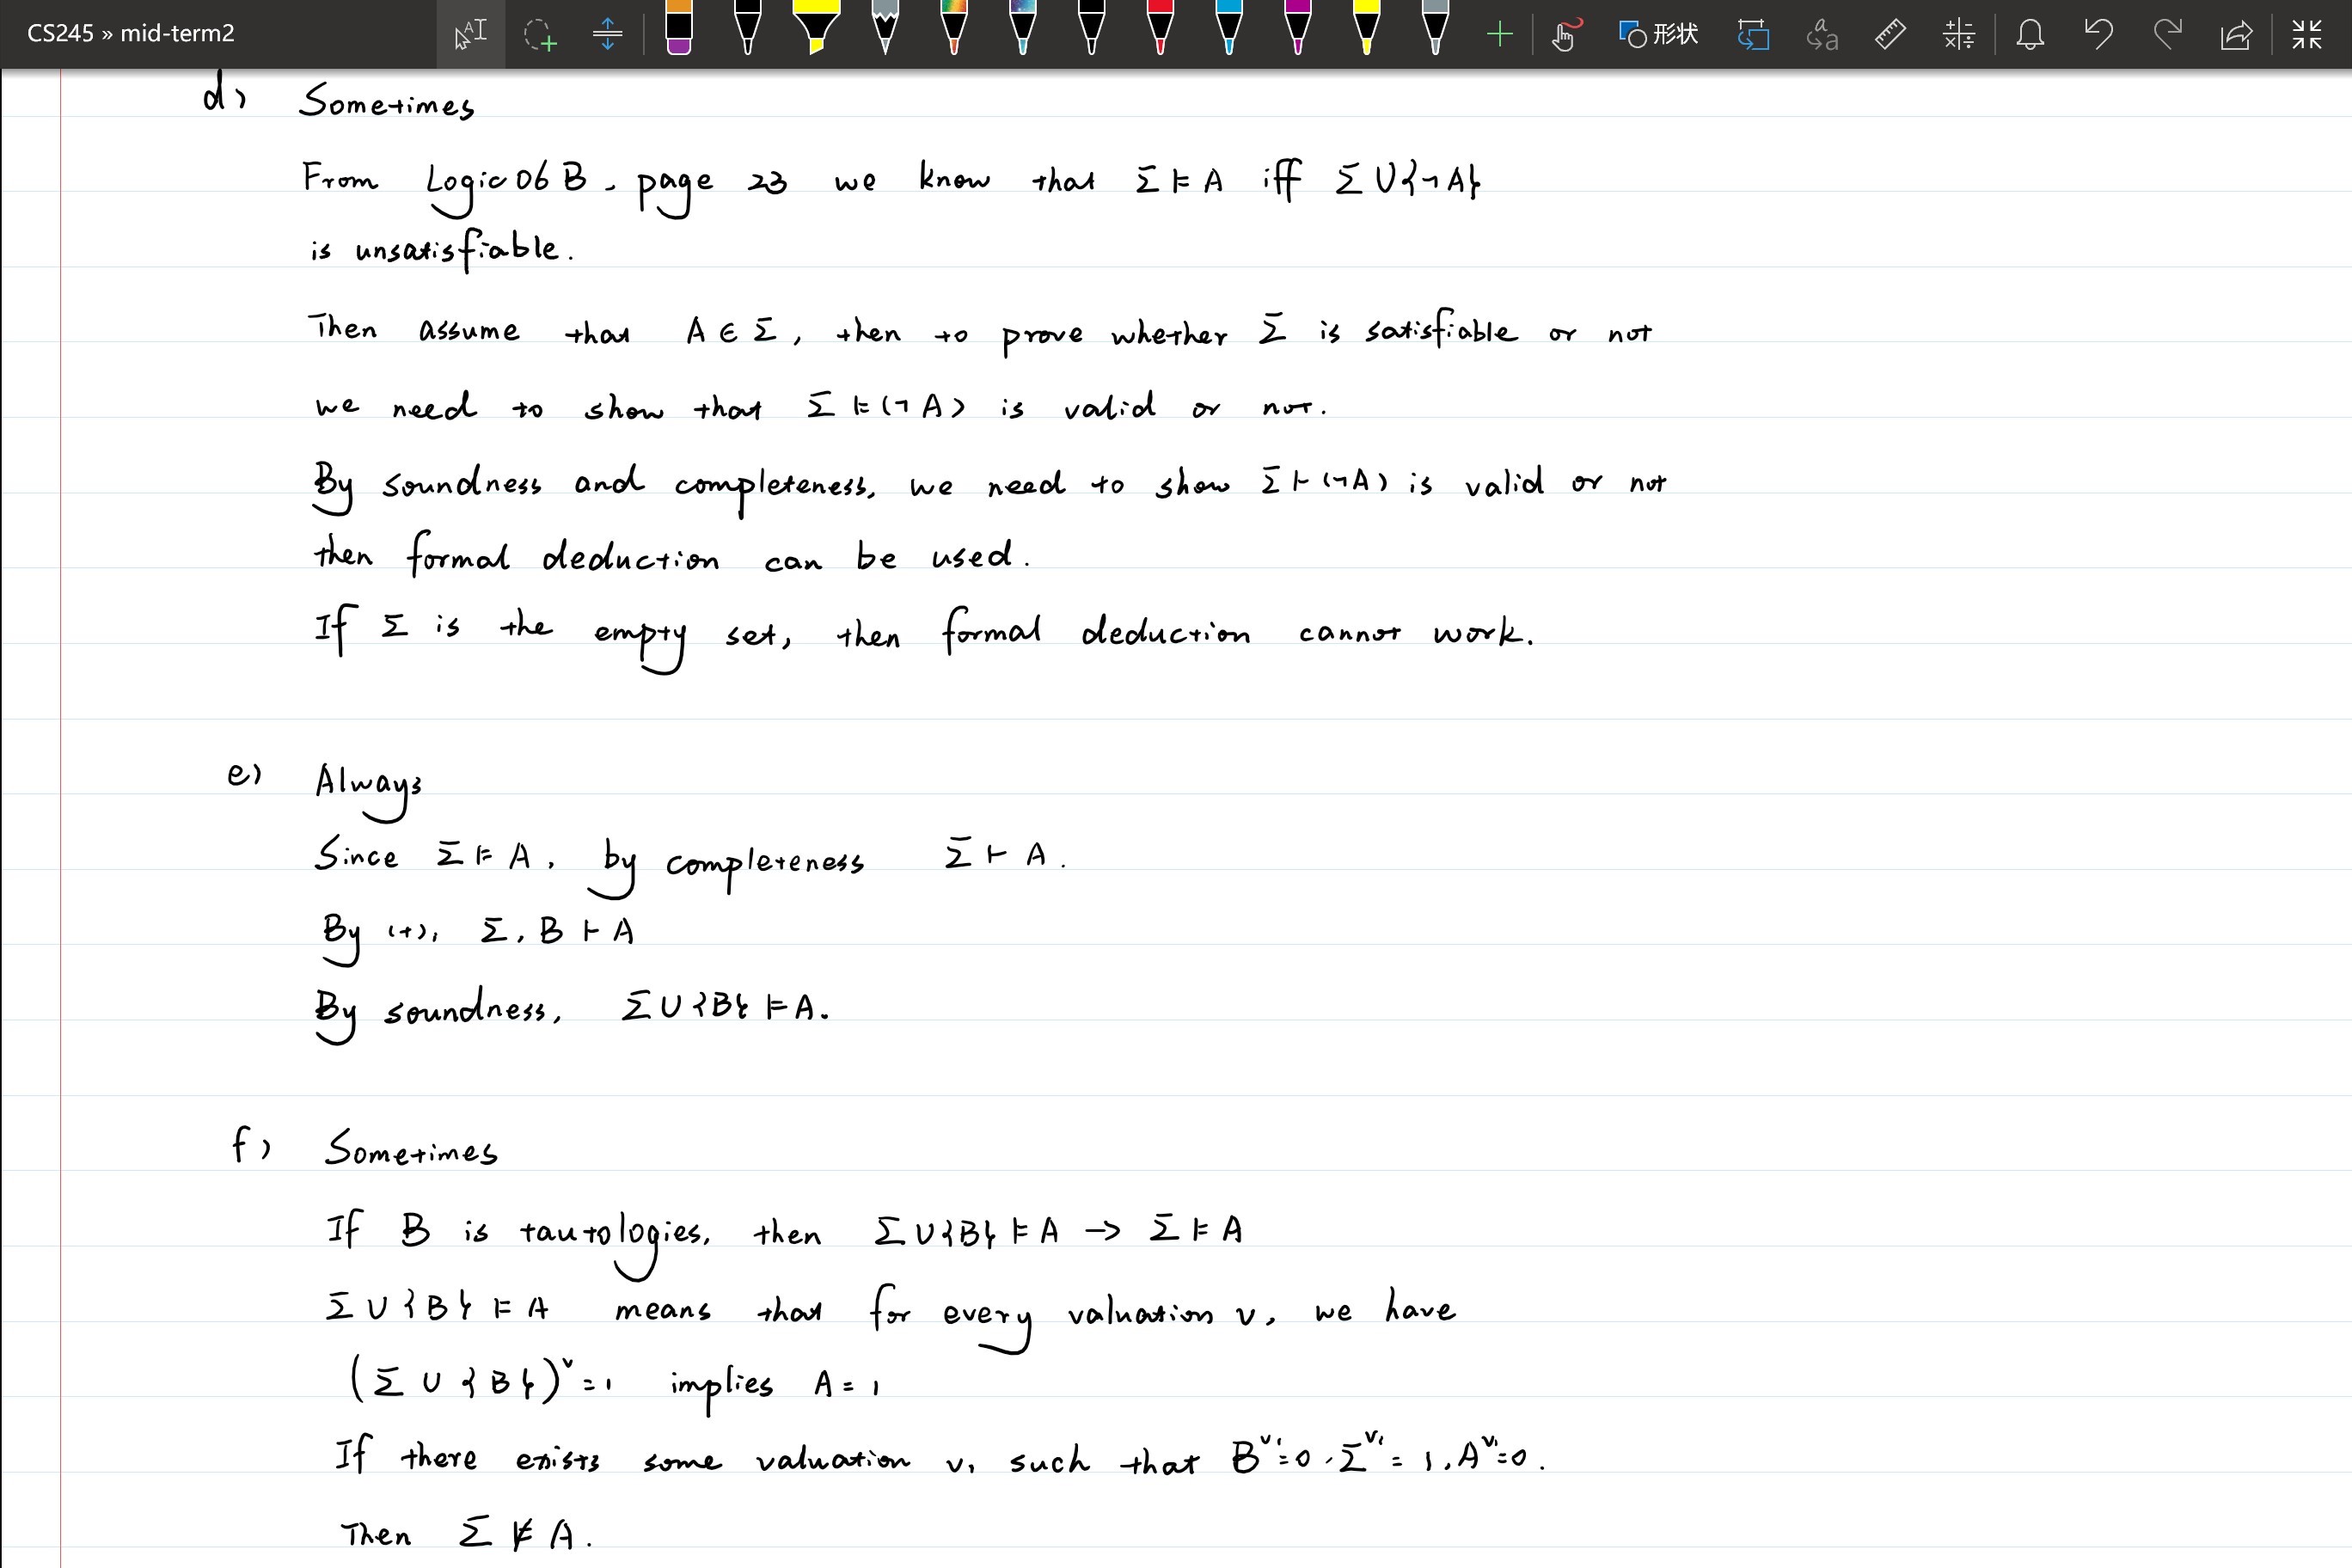 CS245 » mid-term2
形状
d) Sometimes
From Logic06B, page 23 we know that Σ ⊨ A iff Σ ∪ {¬A}
is unsatisfiable.
Then assume that A ∈ Σ, then to prove whether Σ is satisfiable or not
we need to show that Σ ⊨ (¬A) is valid or not.
By soundness and completeness, we need to show Σ ⊢ (¬A) is valid or not
then formal deduction can be used.
If Σ is the empty set, then formal deduction cannot work.
e) Always
Since Σ ⊨ A, by completeness Σ ⊢ A.
By (+), Σ, B ⊢ A
By soundness, Σ ∪ {B} ⊨ A.
f) Sometimes
If B is tautologies, then Σ ∪ {B} ⊨ A → Σ ⊨ A
Σ ∪ {B} ⊨ A means that for every valuation v, we have
(Σ ∪ {B})ᵛ = 1 implies A = 1
If there exists some valuation v₁ such that B^v₁ = 0, Σ^v₁ = 1, A^v₁ = 0.
Then Σ ⊭ A.